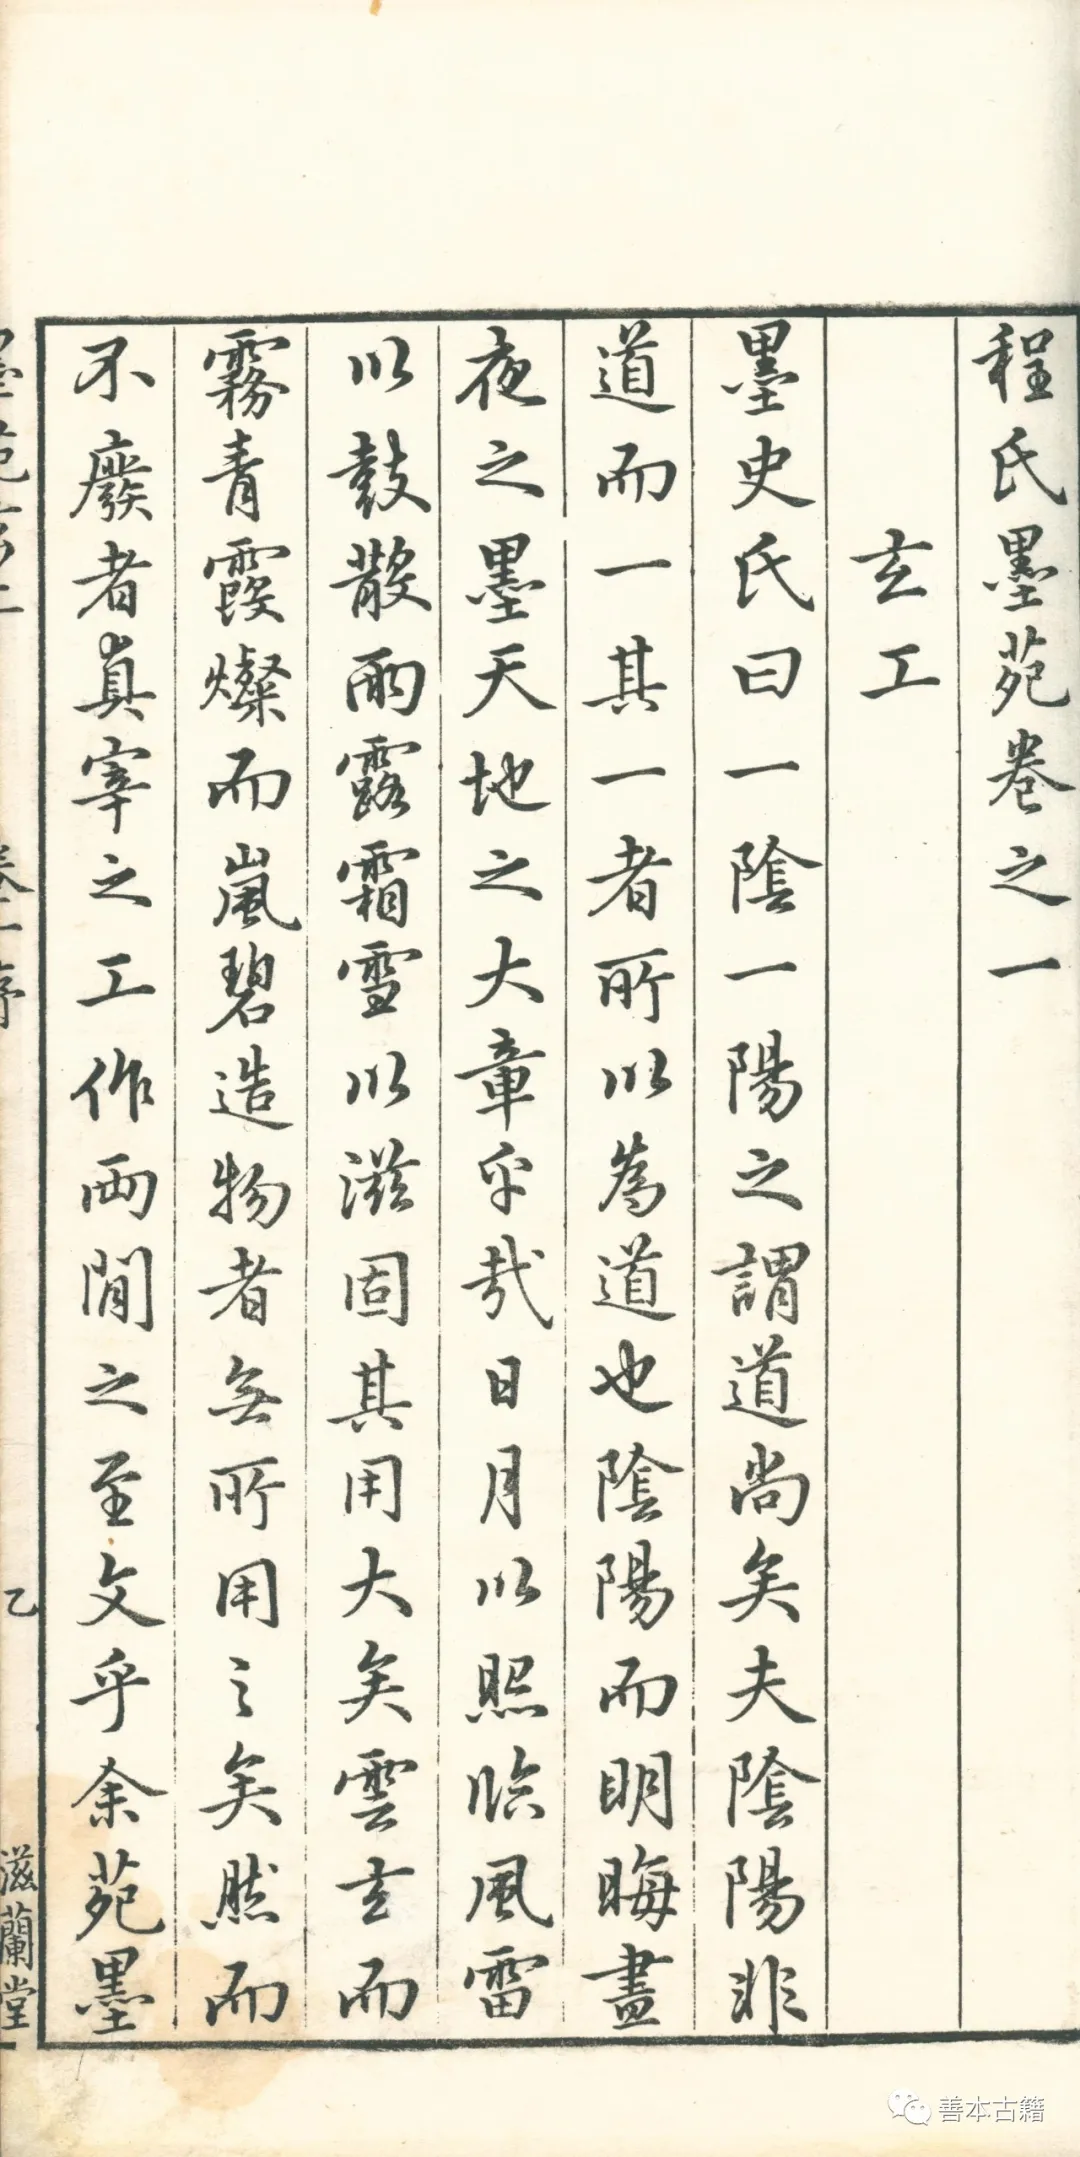 程氏墨苑卷之一
玄工
墨史氏曰一陰一陽之謂道尚矣夫陰陽非
道而一其一者所以為道也陰陽而明晦晝
夜之墨天地之大章乎哉日月以照臨風雷
以鼓散雨露霜雪以滋固其用大矣雲玄而
霧青霞燦而嵐碧造物者無所用之矣然而
不廢者真宰之工作兩閒之至文乎余苑墨
滋蘭堂
善本古籍